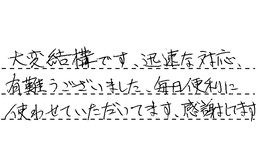 大変結構です、迅速な対応、
有難うございました、毎日便利に
使わせていただいてます、感謝してます